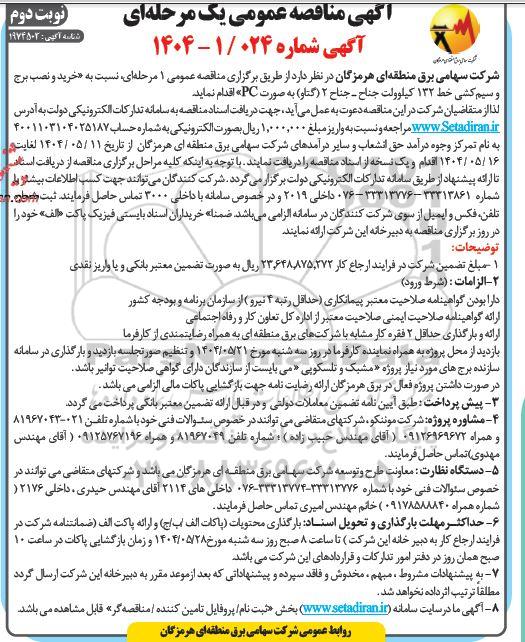 آگهی مناقصه عمومی یک مرحله‌ای
نوبت دوم
شناسه آگهی: ۱۹۷۴۵۰۲
آگهی شماره ۰۲۴ / ۱ - ۱۴۰۴
شرکت سهامی برق منطقه‌ای هرمزگان در نظر دارد از طریق برگزاری مناقصه عمومی ۱ مرحله‌ای، نسبت به «خرید و نصب برج
و سیم کشی خط ۱۳۲ کیلوولت جناح ـ جناح ۲ (گتاو) به صورت PC» اقدام نماید.
لذا از متقاضیان شرکت در این مناقصه دعوت به عمل می‌آید، جهت دریافت اسناد مناقصه به سامانه تدارکات الکترونیکی دولت به آدرس
www.Setadiran.ir مراجعه و نسبت به واریز مبلغ ۱,۰۰۰,۰۰۰ ریال بصورت الکترونیکی به شماره حساب ۴۰۰۱۱۰۳۱۰۴۰۲۵۱۸۷
به نام تمرکز وجوه درآمد حق انشعاب و سایر درآمدهای شرکت سهامی برق منطقه ای هرمزگان از تاریخ ۱۱ / ۰۵ / ۱۴۰۴ لغایت
۱۶ / ۰۵ / ۱۴۰۴ اقدام و یک نسخه از اسناد مناقصه را دریافت نمایند. با توجه به اینکه کلیه مراحل برگزاری مناقصه از دریافت اسناد
تا ارائه پیشنهاد از طریق سامانه تدارکات الکترونیکی دولت برگزار می‌گردد. شرکت کنندگان می‌توانند جهت کسب اطلاعات بیشتر با
شماره ۳۳۳۱۳۸۶۱ – ۳۳۳۱۳۷۷۶–۰۷۶ داخلی ۲۰۱۹ و در خصوص سامانه با داخلی ۳۰۰۰ تماس حاصل فرمایند. ثبت
تلفن، فکس و ایمیل از سوی شرکت کنندگان در سامانه الزامی می‌باشد. ضمنا» خریداران اسناد بایستی فیزیک پاکت «الف» خود را
در روز برگزاری مناقصه به دبیرخانه این شرکت ارائه نمایند.
توضیحات:
۱ –مبلغ تضمین شرکت در فرایند ارجاع کار ۲۳,۶۴۸,۸۷۵,۲۷۲ ریال به صورت تضمین معتبر بانکی و یا واریز نقدی
۲–الزامات : (شرط ورود)
دارا بودن گواهینامه صلاحیت معتبر پیمانکاری (حداقل رتبه ۴ نیرو ) از سازمان برنامه و بودجه کشور
ارائه گواهینامه صلاحیت ایمنی صلاحیت معتبر از اداره کل تعاون کار و رفاه اجتماعی
ارائه و بارگذاری حداقل ۲ فقره کار مشابه با شرکت‌های برق منطقه ای به همراه رضایتمندی از کارفرما
بازدید از محل پروژه به همراه نماینده کارفرما در روز سه شنبه مورخ ۱۴۰۴/۰۵/۲۱ و تنظیم صورتجلسه بازدید و بارگذاری در سامانه
سازنده برج های مورد نیاز پروژه «مشبک و تلسکوپی» می بایست از سازندگان دارای گواهی صلاحیت توانیر باشد.
در صورت داشتن پروژه فعال در برق هرمزگان ارائه رضایت نامه جهت بازگشایی پاکات مالی الزامی می باشد.
۳– پیش پرداخت : طبق آیین نامه تضمین معاملات دولتی و در قبال ارائه تضمین معتبر بانکی پرداخت می گردد.
۴–مشاوره پروژه: شرکت موننکو، شرکتهای متقاضی می توانند در خصوص سئوالات فنی خود با شماره تلفن ۰۲۱–۸۱۹۶۷۰۴۳
و همراه ۰۹۱۲۶۹۶۹۶۷۲ (آقای مهندس حبیب زاده ) ؛ شماره تلفن ۸۱۹۶۷۰۴۹ و همراه ۰۹۱۲۵۷۶۷۱۹۶ (آقای مهندس
مهدوی)تماس حاصل فرمایند.
۵– دستگاه نظارت : معاونت طرح و توسعه شرکت سهامی برق منطقه ای هرمزگان می باشد و شرکتهای متقاضی می توانند در
خصوص سئوالات فنی خود با شماره ۳۳۳۱۳۷۷۶–۳۳۳۱۳۷۷۴–۰۷۶ داخلی های ۲۱۱۴ آقای مهندس حیدری ، داخلی ۲۱۷۶ (
همراه ۰۹۱۷۸۵۸۸۸۴۰ ) خانم مهندس امیری تماس حاصل فرمایند.
۶– حداکثر مهلت بارگذاری و تحویل اسناد: بارگذاری محتویات (پاکات الف /ب/ج) و ارائه پاکت الف (ضمانتنامه شرکت در
فرایند ارجاع کار به دبیر خانه این شرکت ) تا ساعت ۸ صبح روز سه شنبه مورخ۱۴۰۴/۰۵/۲۸ و زمان بازگشایی پاکات در ساعت ۱۰
صبح همان روز در دفتر امور تدارکات و قراردادهای این شرکت می باشد.
۷– به پیشنهادات مشروط ، مبهم ، مخدوش و فاقد سپرده و پیشنهاداتی که بعد از موعد مقرر به دبیرخانه این شرکت ارسال گردد
مطلقاً ترتیب اثر داده نخواهد شد.
۸– آگهی ما در سایت سامانه (www.setadiran.ir) بخش «ثبت نام/ پروفایل تامین کننده / مناقصه‌گر» قابل مشاهده می باشد.
روابط عمومی شرکت سهامی برق منطقه‌ای هرمزگان